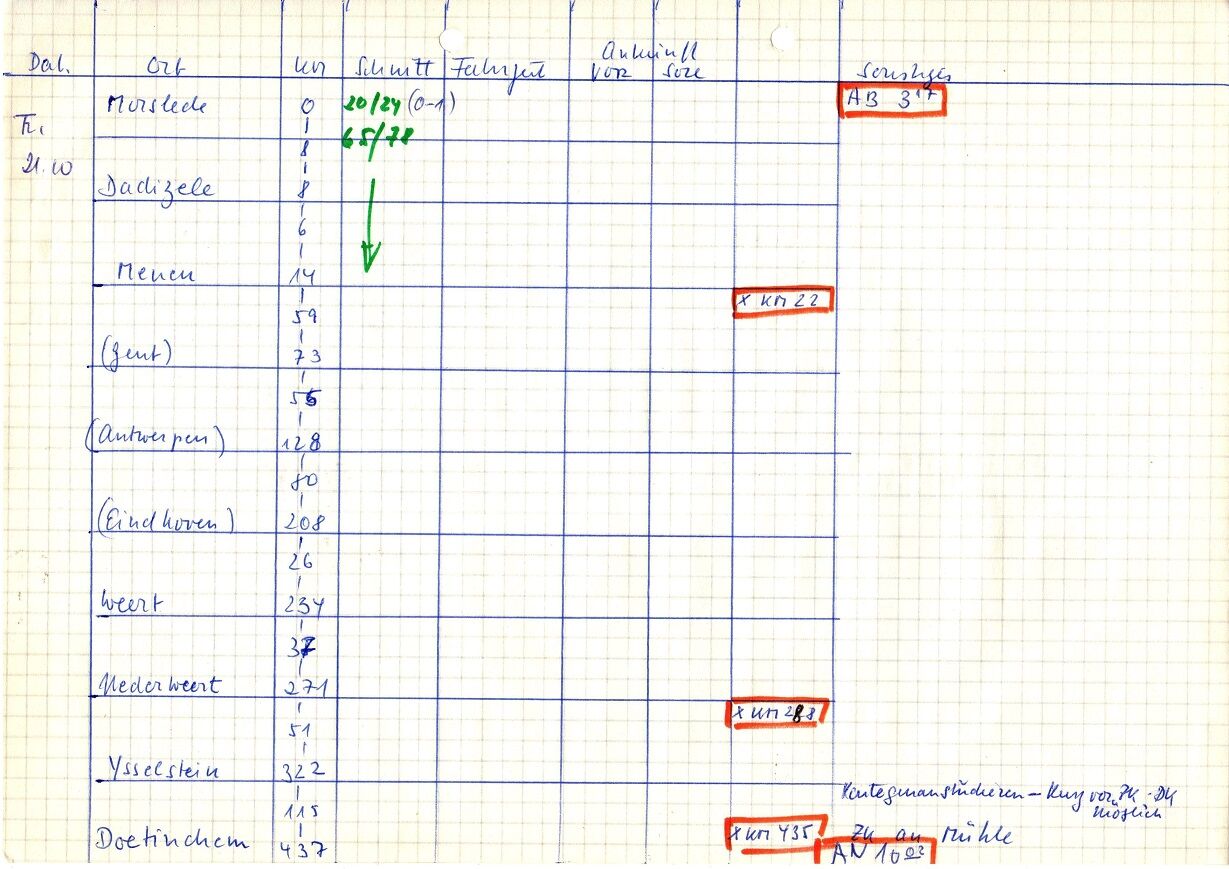 Dat. Ort km Schnitt Fahrzeit Ankunft Sonstiges
vor soll
Moorslede 0 20/24 (0-1) AB 3 17
Fr. | 65/78
8
21.10
Dadizele 8
6
Menen 14
X KM 22
59
(Gent) 73
55
(Antwerpen) 128
80
(Eindhoven) 208
26
Weert 234
37
Nederweert 271
X KM 288
51
Ysselstein 322
Kurz vor ZK · DK
möglich
115
Doetinchem 437 X KM 435 ZK an Mühle
AN 10 02